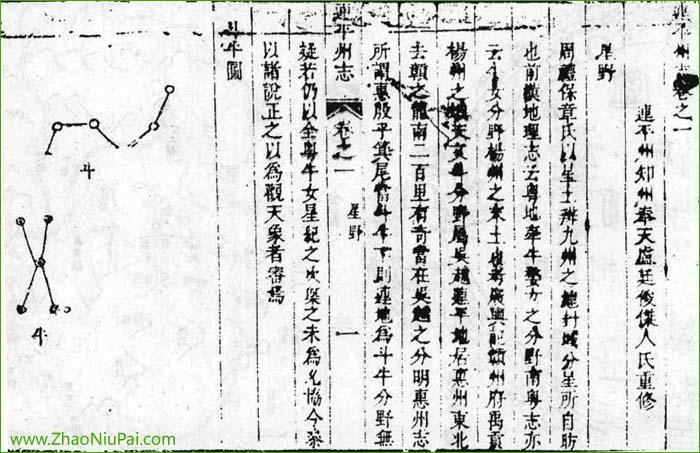 連平州志卷之一
連平州知州奉天盧廷俊傑人氏重修
星野
周禮保章氏以星土辨九州之地封域分星所自昉
也前漢地理志云粵地牽牛婺女之分野南粵志亦
云牛女分野楊州之末土也考廣輿記贛州府禹貢
楊州之域天文斗分野屬吳越連平地居惠州東北
去贛之龍南二百里有奇當在吳越之分明惠州志
所謂惠殷乎箕尾當斗牛下則連地為斗牛分野無
連平州志 卷之一 星野 一
疑若仍以全粵牛女星紀之次槩之未為允協今叅
以諸說正之以為觀天象者審焉
斗牛圖
斗
牛
www.ZhaoNiuPai.com